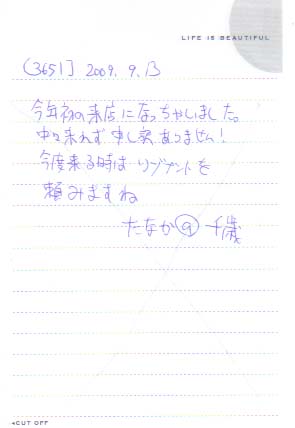 LIFE IS BEAUTIFUL
[3651] 2009. 9. 13
今年初の来店になっちゃいました。
中々来れず申し訳ありません!
今度来る時は リブプリントを
頼みますね
たなか 千歳
CUT OFF